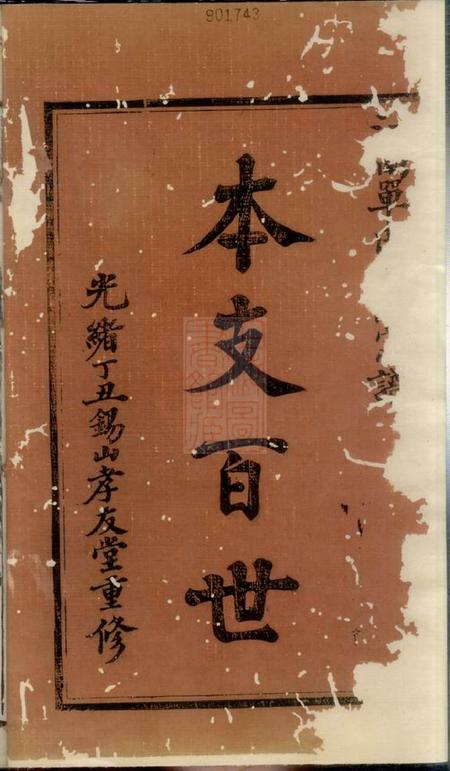 901743
本支百世
光緒丁丑錫山孝友堂重修